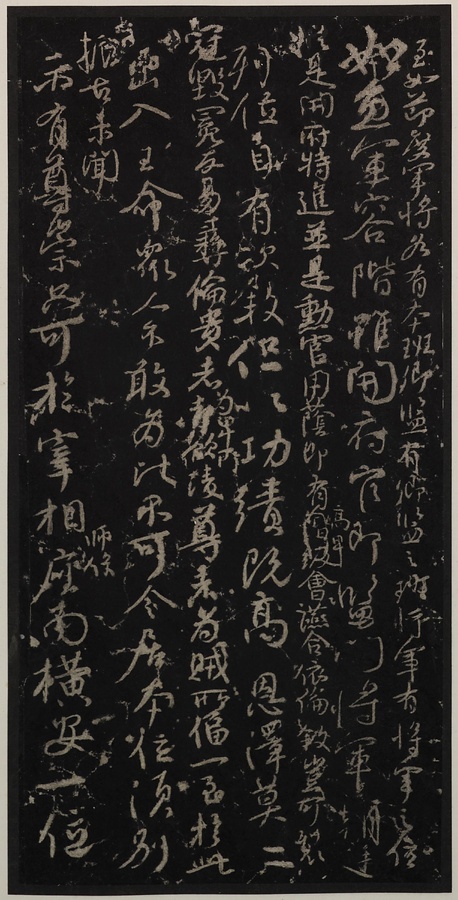 至如節度軍將各有本班卿監有卿監之班將軍有將軍之位
如魚軍容階雖開府官即監門將軍朝廷
縱是開府特進並是勳官用蔭即有高卑會讌合依倫敘豈可裂
列位自有次敘但以功績既高恩澤莫二
冠毀冕反易彝倫貴者為卑所凌尊者為賊所逼一至於此
出入王命眾人不敢為比不可令居本位須別
振古未聞
示有尊崇只可於宰相師保座南橫安一位